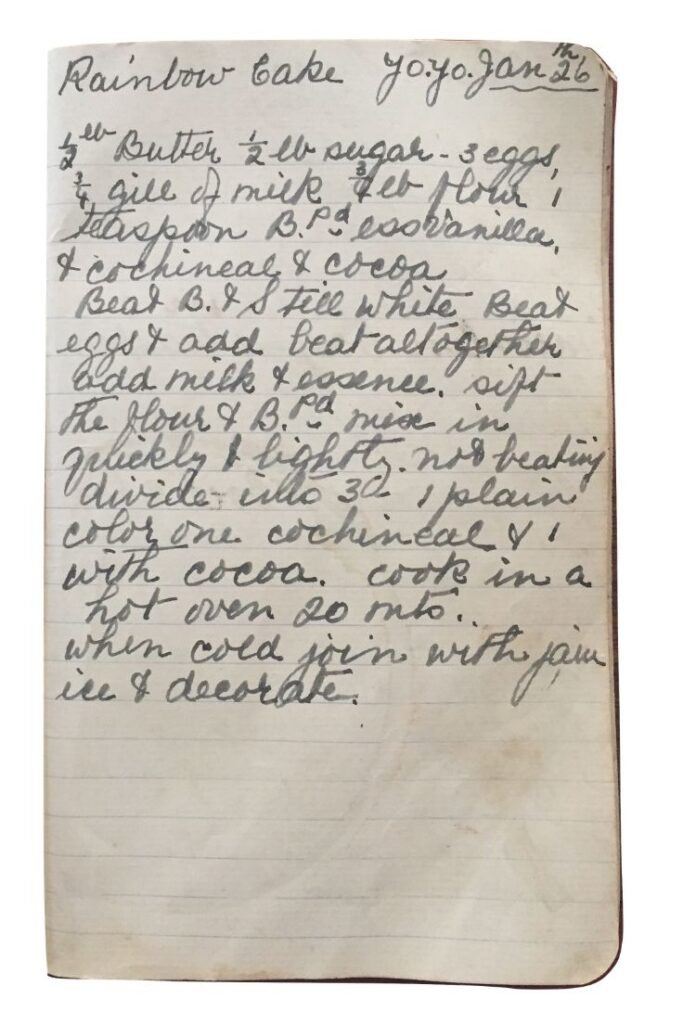 Rainbow Cake Yo.Yo. Jan 26th
½ lb Butter ½ lb sugar - 3 eggs,
¾ gill of milk ¾ lb flour 1
teaspoon B. Pd ess Vanilla,
& cochineal & cocoa
Beat B. & S till white Beat
eggs & add beat altogether
add milk & essence. sift
the flour & B. Pd mix in
quickly & lightly. not beating
divide into 3 - 1 plain
color one cochineal & 1
with cocoa. cook in a
hot oven 20 mts..
when cold join with jam
ice & decorate.